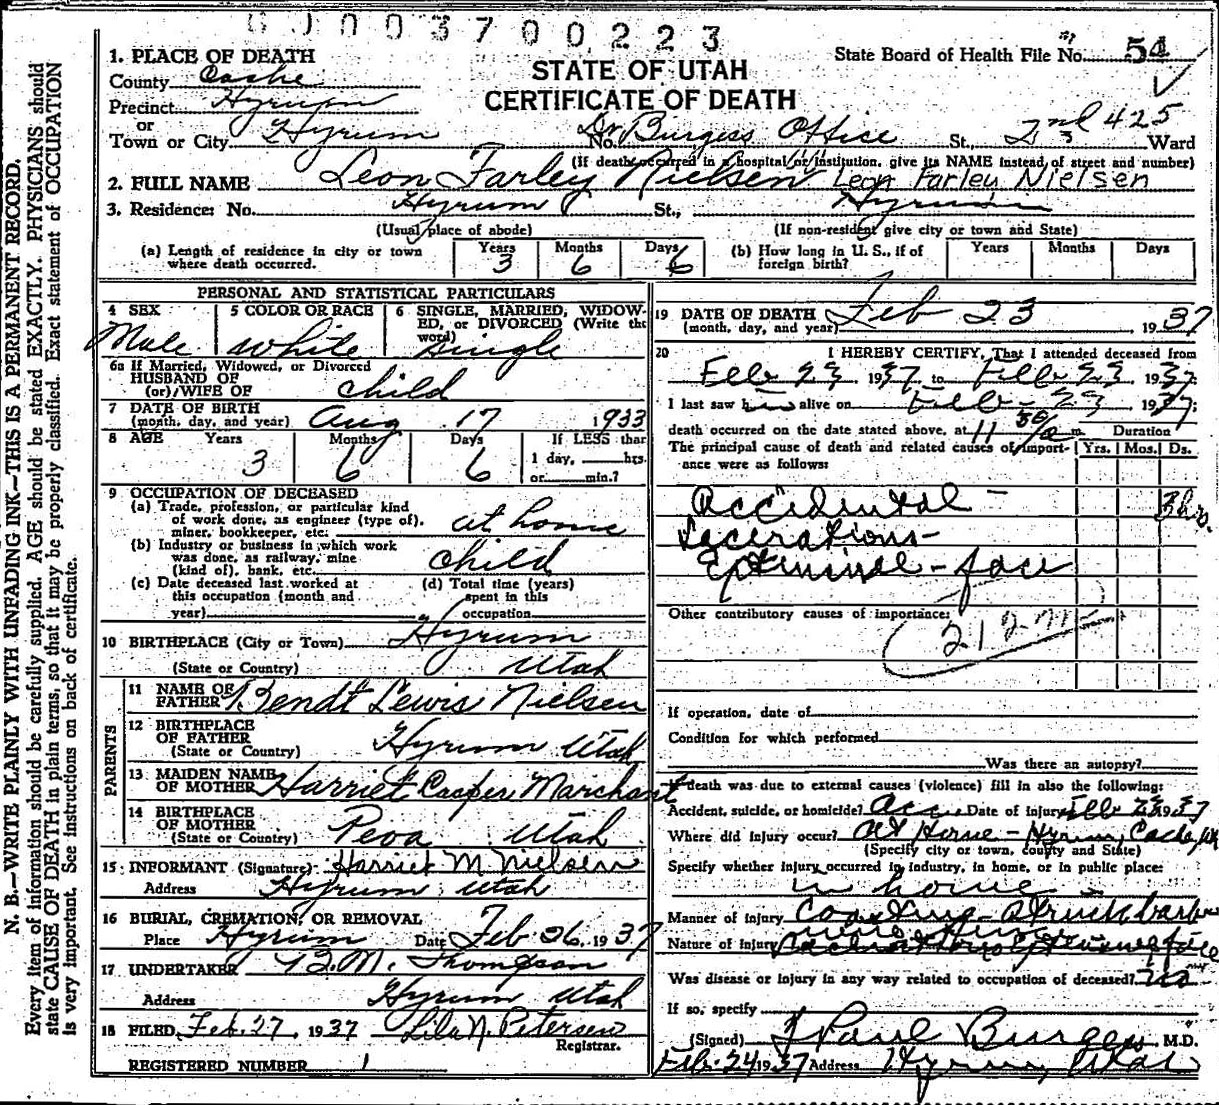 0 0 0 3 7 0 0 2 2 3
N. B.—WRITE PLAINLY WITH UNFADING INK—THIS IS A PERMANENT RECORD.
Every item of information should be carefully supplied. AGE should be stated EXACTLY. PHYSICIANS should
state CAUSE OF DEATH in plain terms, so that it may be properly classified. Exact statement of OCCUPATION
is very important. See instructions on back of certificate.
State Board of Health File No. 54
STATE OF UTAH
CERTIFICATE OF DEATH
1. PLACE OF DEATH
County Cache
Precinct Hyrum
or
Town or City Hyrum No. Dr Burgess Office St., 2nd 425 Ward
(If death occurred in a hospital or institution, give its NAME instead of street and number)
2. FULL NAME Leon Farley Nielsen Leon Farley Nielsen
3. Residence: No. Hyrum St., Hyrum
(Usual place of abode) (If non-resident give city or town and State)
(a) Length of residence in city or town where death occurred. Years 3 Months 6 Days 6
(b) How long in U. S., if of foreign birth? Years Months Days
PERSONAL AND STATISTICAL PARTICULARS
4 SEX Male
5 COLOR OR RACE white
6 SINGLE, MARRIED, WIDOWED, or DIVORCED (Write the word) single
6a If Married, Widowed, or Divorced
HUSBAND OF
(or) WIFE OF child
7 DATE OF BIRTH
(month, day, and year) Aug 17 1933
8 AGE Years 3 Months 6 Days 6 If LESS than
1 day, hrs.
or min.?
9 OCCUPATION OF DECEASED
(a) Trade, profession, or particular kind
of work done, as engineer (type of),
miner, bookkeeper, etc. at home
(b) Industry or business in which work
was done, as railway, mine
(kind of), bank, etc. child
(c) Date deceased last worked at
this occupation (month and
year)
(d) Total time (years)
spent in this
occupation
10 BIRTHPLACE (City or Town) Hyrum
(State or Country) Utah
PARENTS
11 NAME OF
FATHER Bendt Lewis Nielsen
12 BIRTHPLACE
OF FATHER
(State or Country) Hyrum Utah
13 MAIDEN NAME
OF MOTHER Harriet Cooper Marchant
14 BIRTHPLACE
OF MOTHER
(State or Country) Peoa Utah
15 INFORMANT (Signature) Harriet M Nielsen
Address Hyrum, Utah
16 BURIAL, CREMATION, OR REMOVAL
Place Hyrum Date Feb 26, 1937
17 UNDERTAKER B. M. Thompson
Address Hyrum Utah
18 FILED, Feb. 27 1937 Lila N. Petersen
Registrar.
REGISTERED NUMBER 1
19 DATE OF DEATH
(month, day, and year) Feb 23 1937
20 I HEREBY CERTIFY, That I attended deceased from
Feb 23 1937, to Feb 23 1937;
I last saw him alive on Feb 23 1937;
death occurred on the date stated above, at 11 50/a m. Duration
The principal cause of death and related causes of importance were as follows: Yrs. Mos. Ds.
Accidental - 3 hrs.
Lacerations-
face
Other contributory causes of importance:
212
If operation, date of
Condition for which performed
Was there an autopsy?
If death was due to external causes (violence) fill in also the following:
Accident, suicide, or homicide? acc. Date of injury Feb 23 1937
Where did injury occur? At Home - Hyrum, Cache, Ut
(Specify city or town, county and State)
Specify whether injury occurred in industry, in home, or in public place:
in home
Manner of injury Coasting - struck barb
wire
Nature of injury face
Was disease or injury in any way related to occupation of deceased? no
If so, specify
(Signed) J Paul Burgess M.D.
Feb. 24 1937 Address Hyrum, Utah